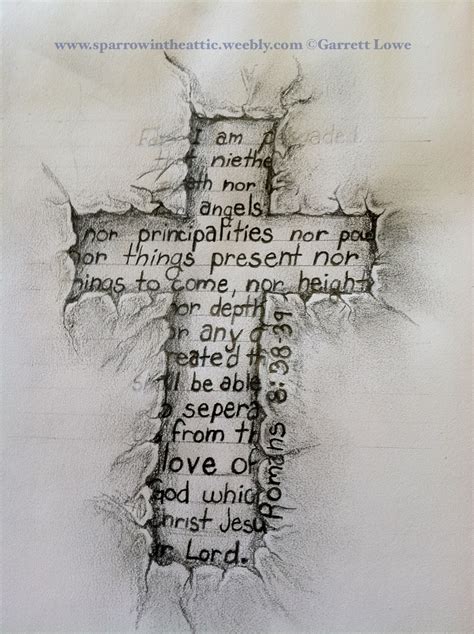 www.sparrowintheattic.weebly.com ©Garrett Lowe
I am p uaded
niethe
eth nor
angels
nor principalities nor pow
or things present nor
hings to come, nor height
or depth
or any
reated th
ll be able
seperat
from th
love of
God which
Christ Jesu
ur Lord.
Romans 8:38-39